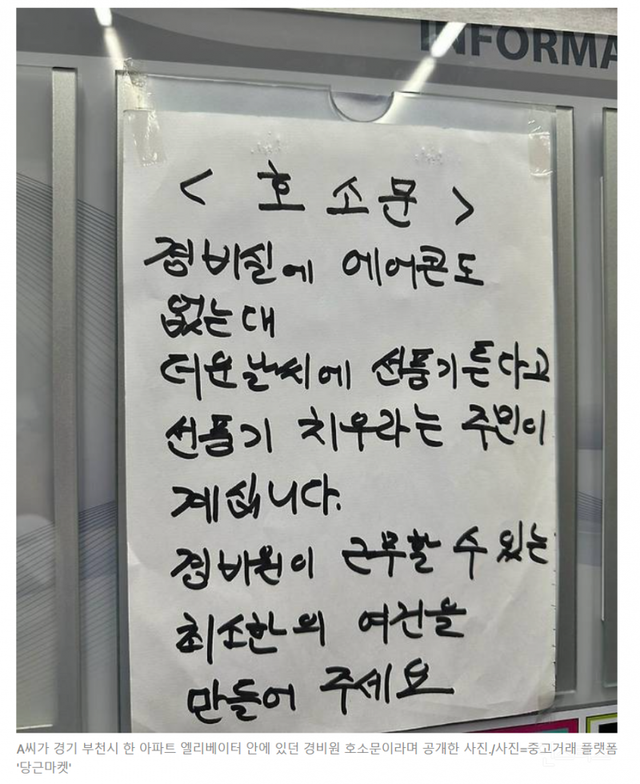 INFORMA
< 호 소 문 >
경비실에 에어콘도
없는대
더운날씨에 선풍기튼다고
선풍기 치우라는 주민이
계십니다.
경비원이 근무할 수 있는
최소한의 여건을
만들어 주세요
A씨가 경기 부천시 한 아파트 엘리베이터 안에 있던 경비원 호소문이라며 공개한 사진./사진=중고거래 플랫폼
'당근마켓'